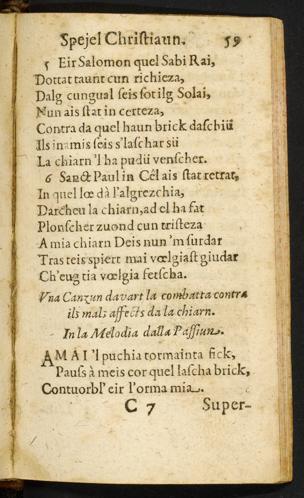 Spejel Christiaun. 59
5 Eir Salomon quel Sabi Rai,
Dottat taunt cun richieza,
Dalg cungual seis sot ilg Solai,
Nun ais stat in certeza,
Contra da quel haun brick daschiü
Ils inamis seis s'laschar sü
La chiarn 'l ha pudü venscher.
6 Sanct Paul in Cêl ais stat retrat,
In quel lœ dà l'algrezchia,
Darcheu la chiarn, ad el ha fat
Plonscher zuond cun tristeza
A mia chiarn Deis nun 'm surdar
Tras teis spiert mai vœlgiast giudar
Ch'eug tia vœlgia fetscha.
Vna Canzun davart la combatta contra
ils mals affects da la chiarn.
In la Melodia dalla Passiun.
AMAI 'l puchia tormainta fick,
Pauss à meis cor quel lascha brick,
Contuorbl' eir l'orma mia.
C 7 Super-